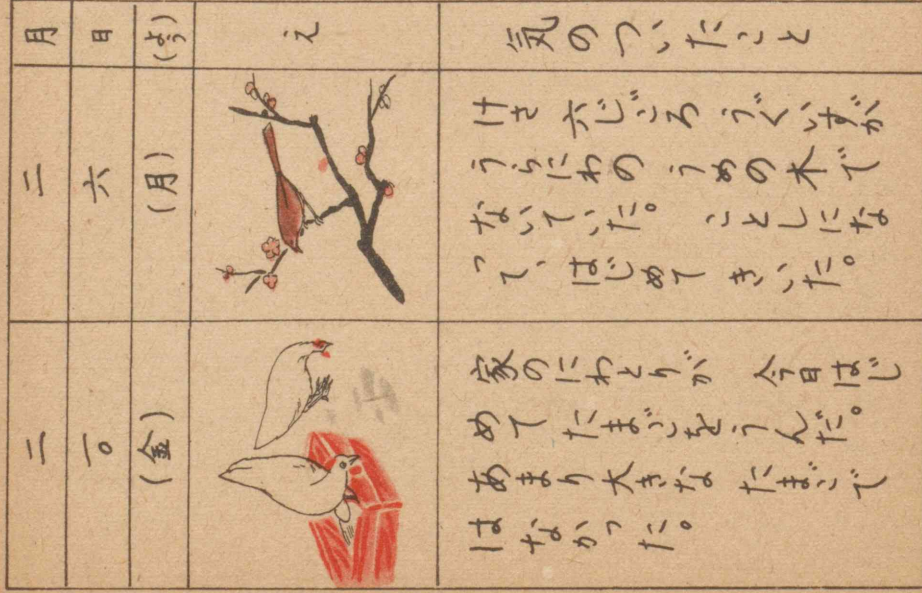 月
日
(よう)
え
気のついたこと
二
六
(月)
けさ 六じごろ うぐいすが
うらにわの うめの木で
ないていた。 ことしにな
って、はじめて きいた。
二
一〇
(金)
家のにわとりが 今日はじ
めて たまごを うんだ。
あまり大きな たまごで
は なかった。